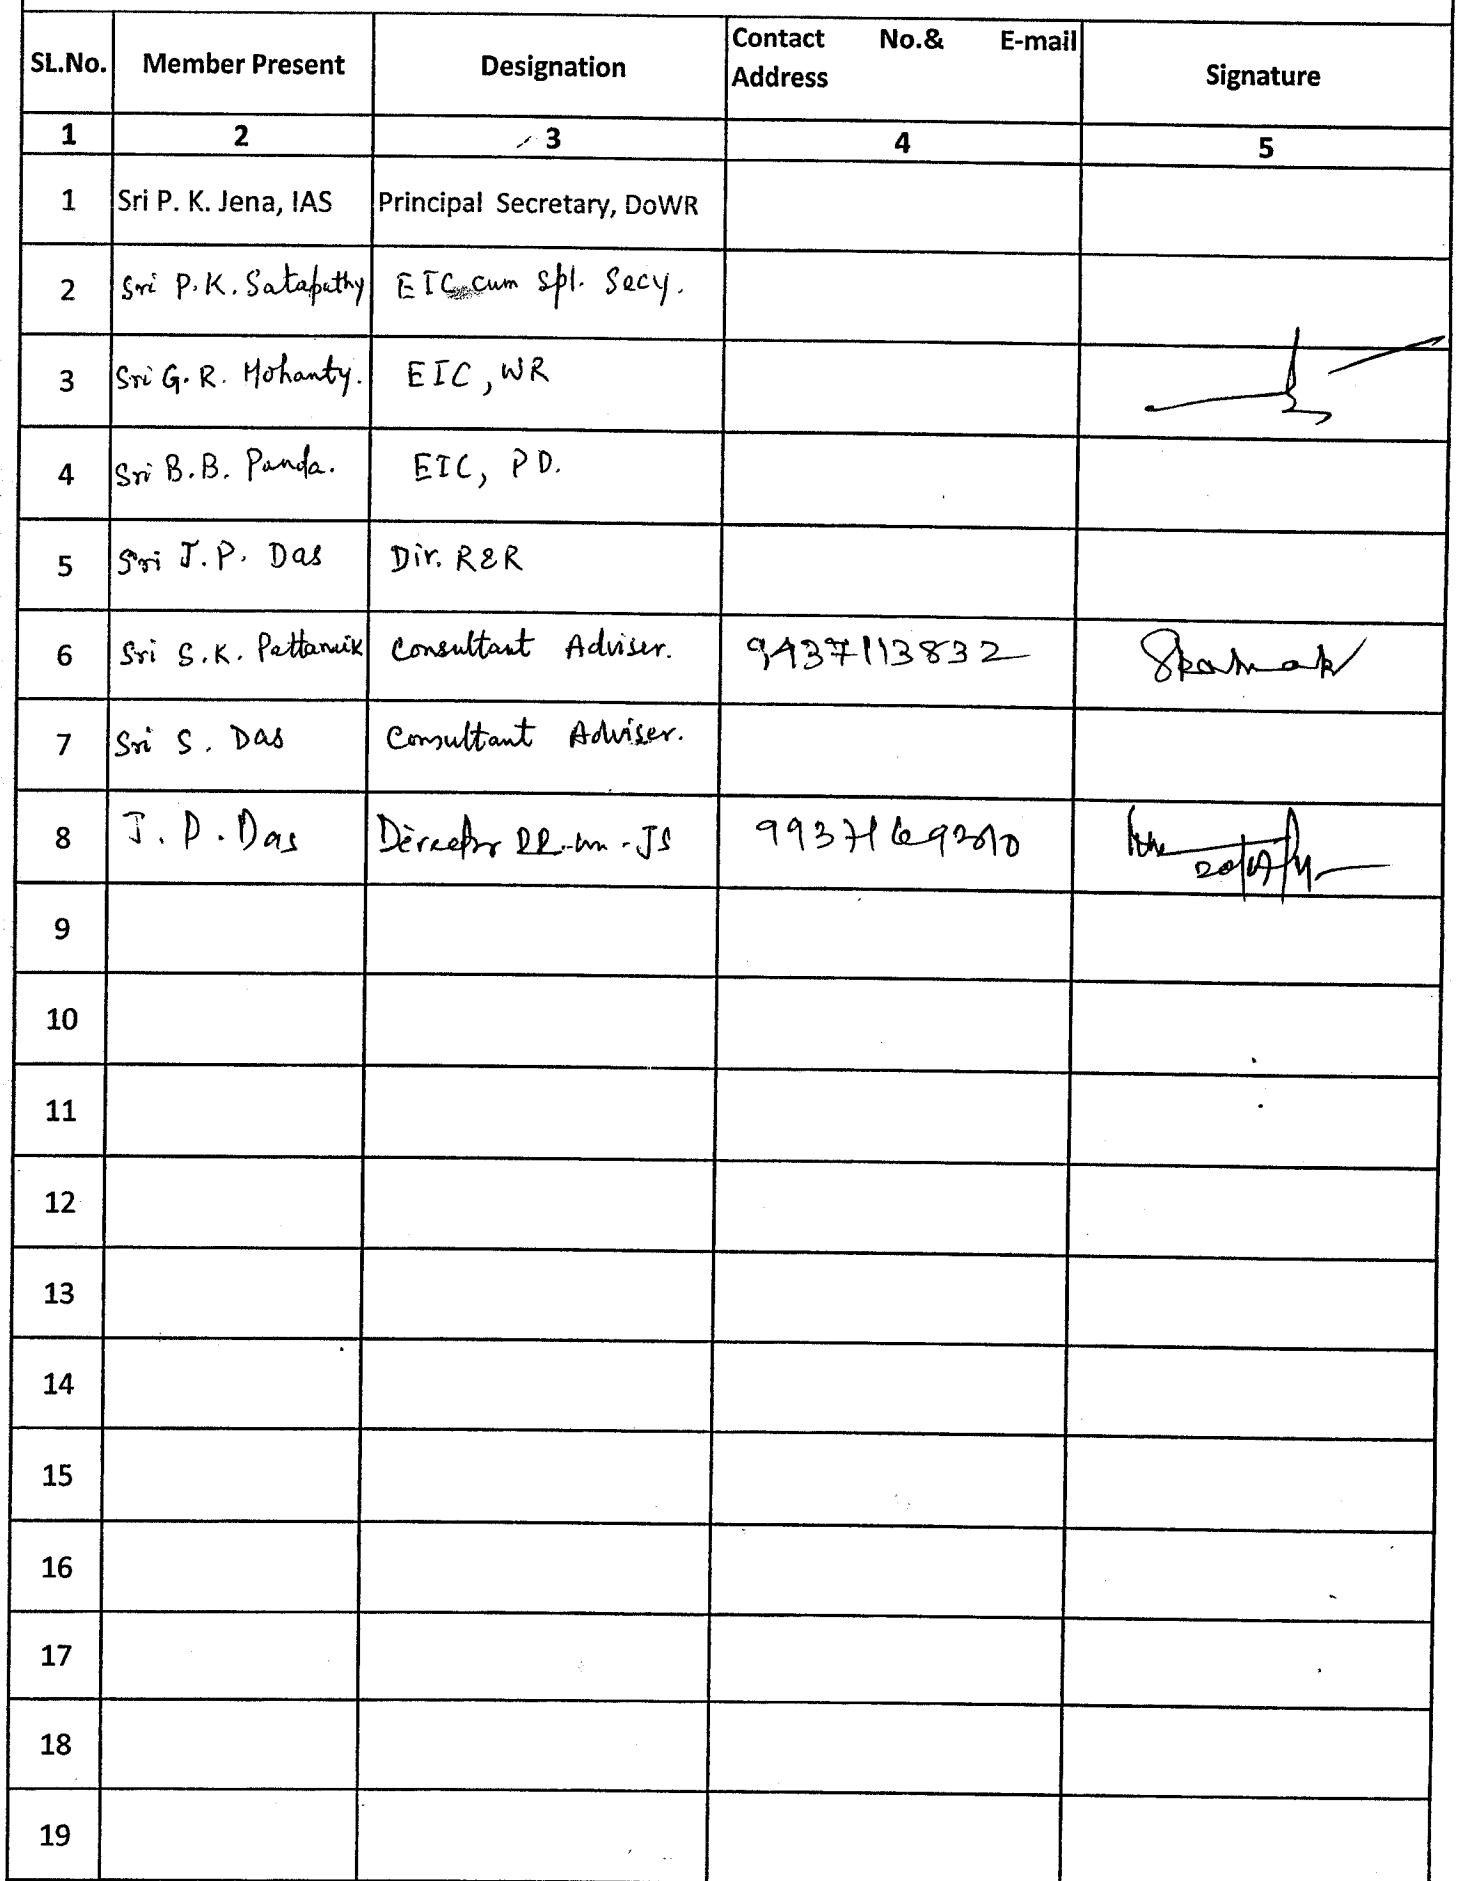 SL.No. Member Present Designation Contact No.& E-mail Address Signature
1 2 3 4 5
1 Sri P. K. Jena, IAS Principal Secretary, DoWR
2 Sri P.K. Satapathy EIC cum Spl. Secy.
3 Sri G.R. Mohanty. EIC, WR
4 Sri B.B. Panda. EIC, PD.
5 Sri J.P. Das Dir. R&R
6 Sri S.K. Pattanaik Consultant Adviser. 9437113832
7 Sri S. Das Consultant Adviser.
8 J.P. Das Director RR-cum-JS
9
10
11
12
13
14
15
16
17
18
19